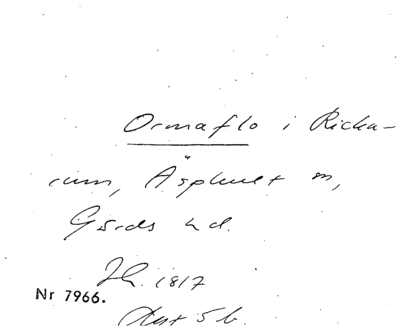 Ormaflo i Ricka-
rum, Äsphult sn,
Gärds hd.
Jh. 1817
Nr 7966.
Akt 5 b.